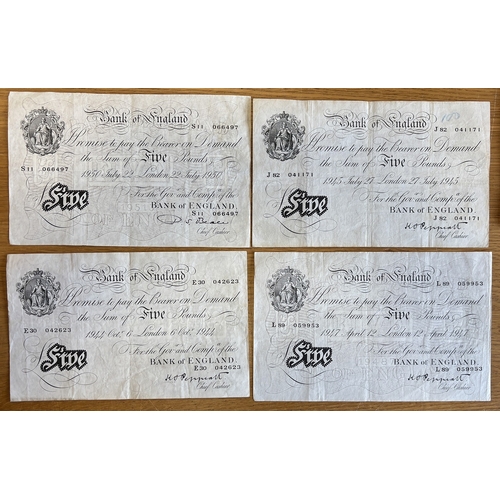 Bank of England
S11 066497
I Promise to pay the Bearer on Demand
the Sum of Five Pounds
S11 066497
1950 July 22 London 22 July 1950
For the Gov.r and Comp.a of the
BANK OF ENGLAND.
Five
S11 066497
P S Beale
Chief Cashier
Bank of England
J82 041171
I Promise to pay the Bearer on Demand
the Sum of Five Pounds
J82 041171
1945 July 27 London 27 July 1945
For the Gov.r and Comp.a of the
BANK OF ENGLAND.
Five
J82 041171
K O Peppiatt
Chief Cashier
Bank of England
E30 042623
I Promise to pay the Bearer on Demand
the Sum of Five Pounds
E30 042623
1944 Oct. 6 London 6 Oct. 1944
For the Gov.r and Comp.a of the
BANK OF ENGLAND.
Five
E30 042623
K O Peppiatt
Chief Cashier
Bank of England
L89 059953
I Promise to pay the Bearer on Demand
the Sum of Five Pounds
L89 059953
1947 April 12 London 12 April 1947
For the Gov.r and Comp.a of the
BANK OF ENGLAND.
Five
L89 059953
K O Peppiatt
Chief Cashier